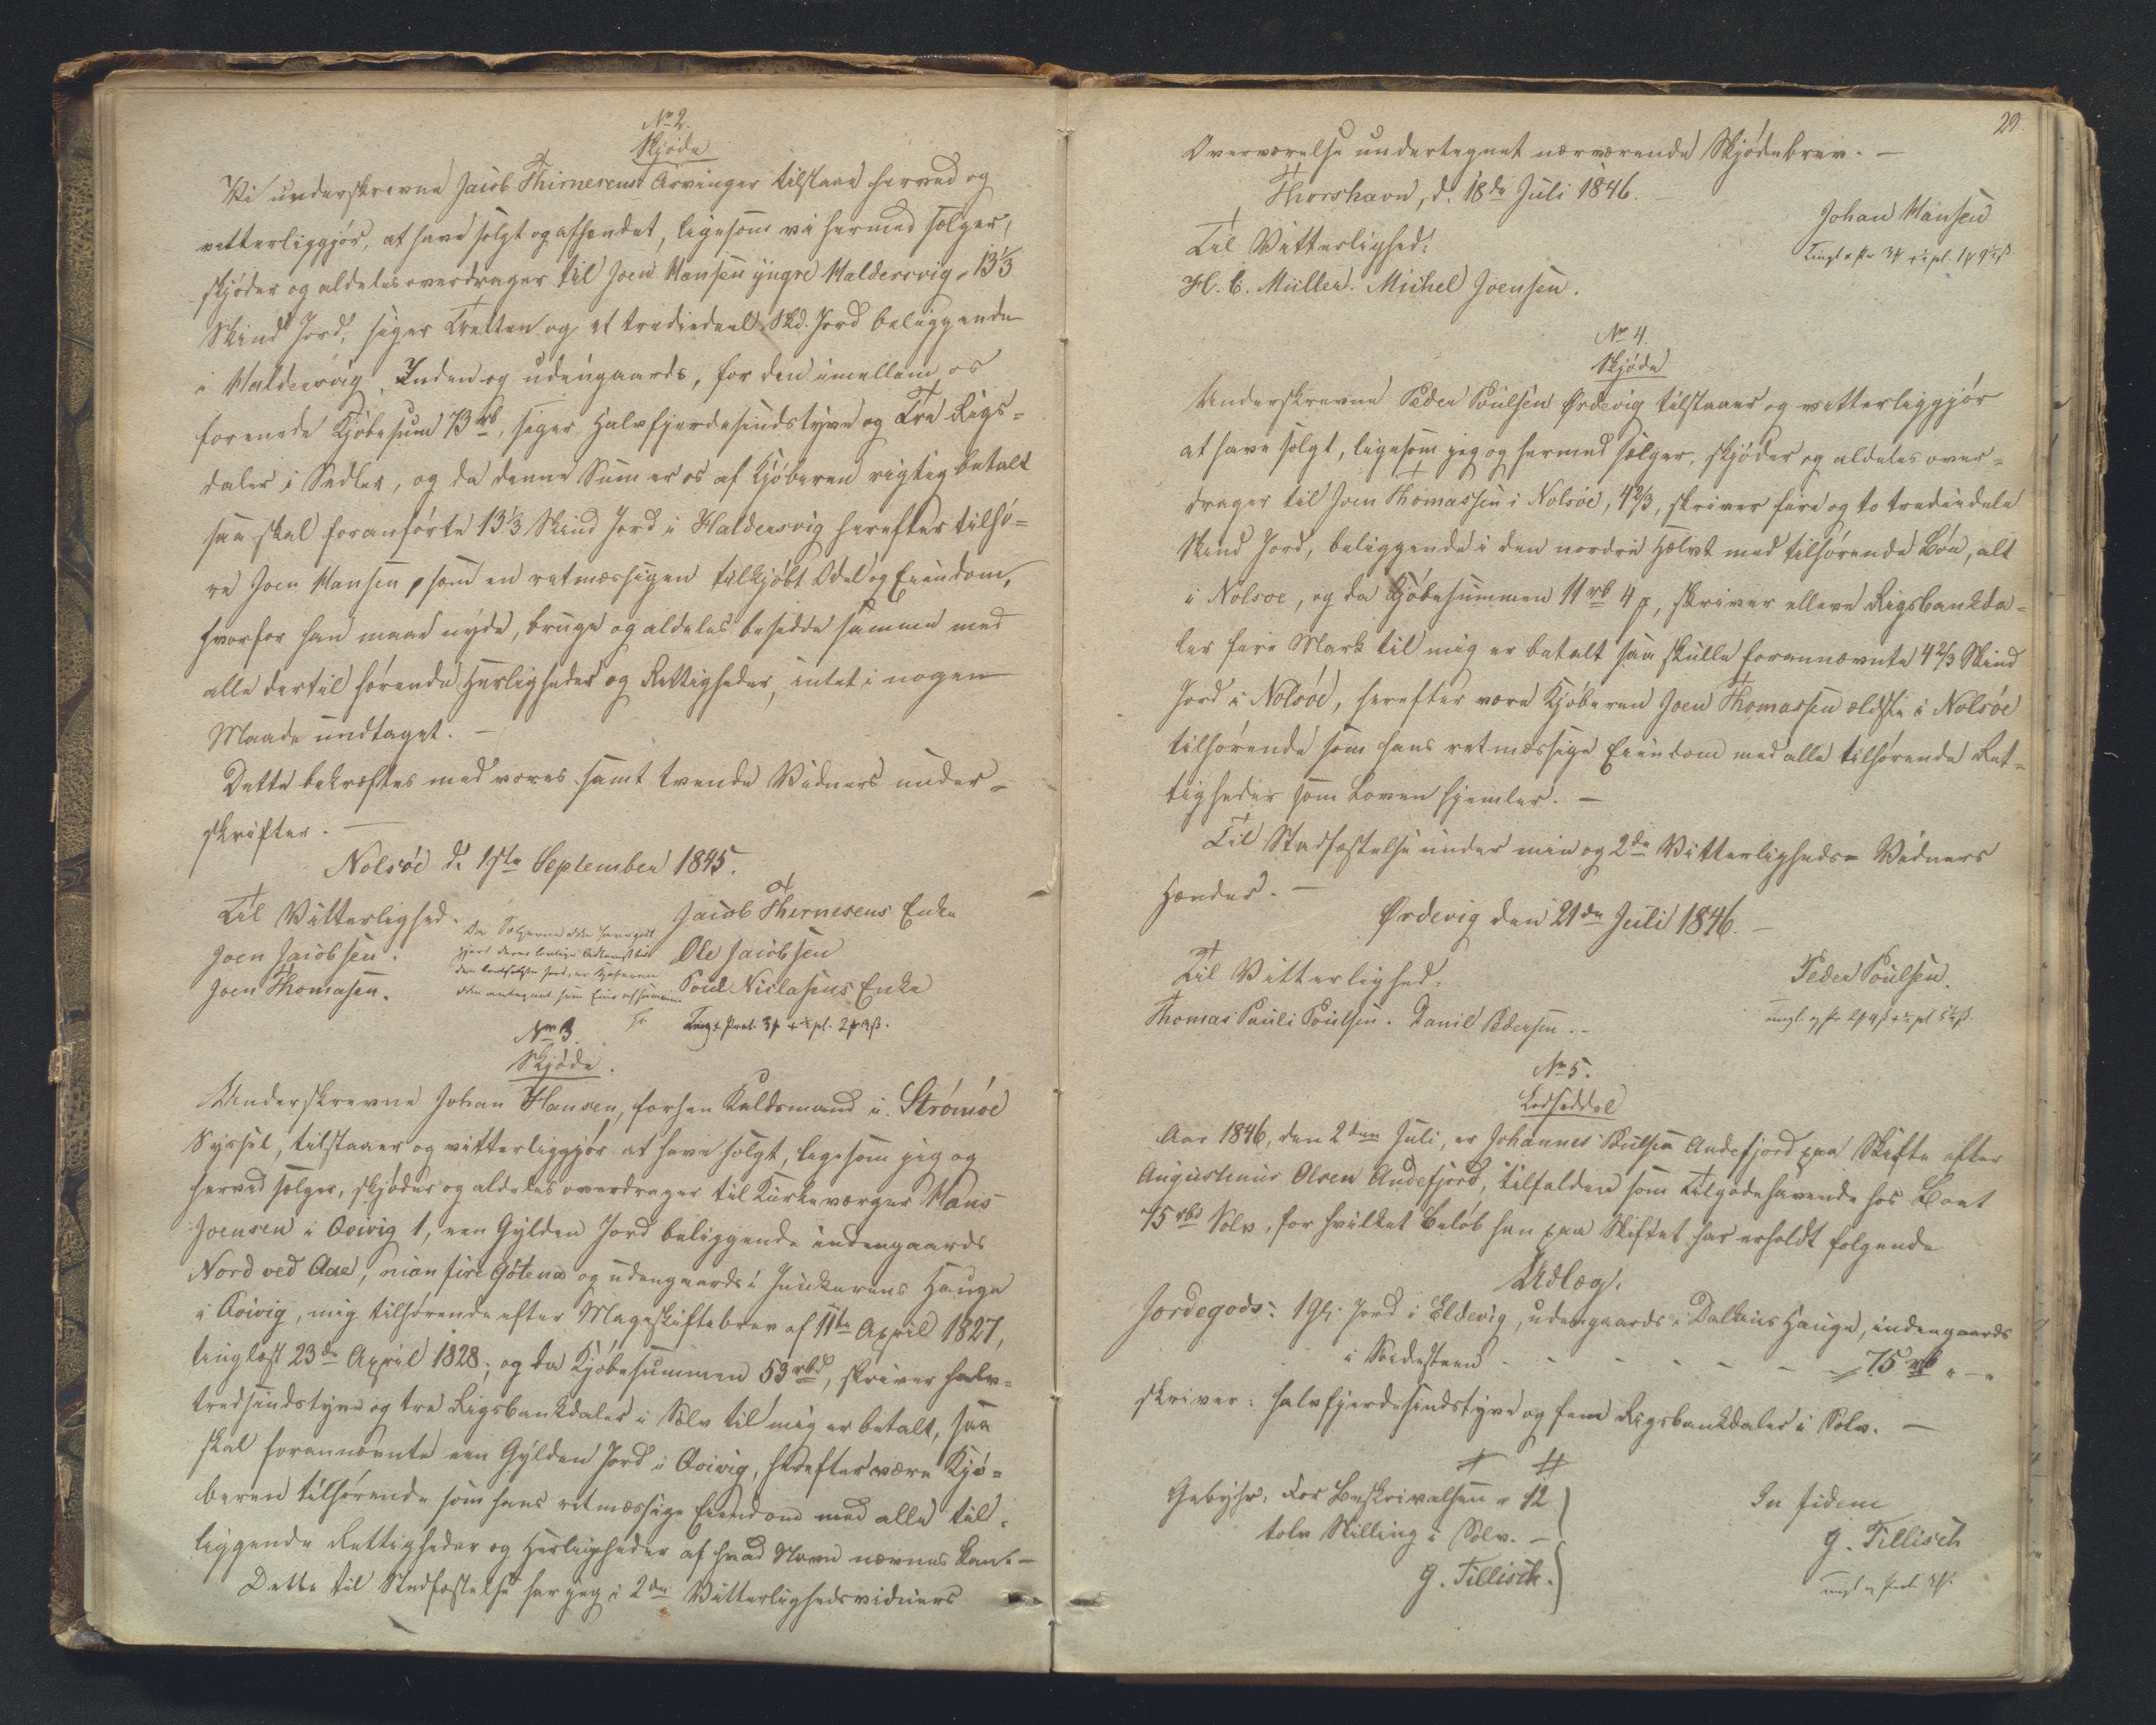 No 2.
Skjøde
Vi underskrevne Jacob Thirnesens Arvinger tilstaae herved og
vitterliggjør, at have solgt og afhendet, ligesom vi hermed sælger,
skjøder og aldeles overdrager til Joen Hansen yngre Haldersvig, 13⅓
Skind Jord, siger Tretten og et trediedeel Skd. Jord beliggende
i Haldersvig, Inden og udengaards, for den imellem os
forenede Kjøbesum 73 rb, siger Halvfjerdesindstyve og Tre Rigs-
daler i Sedler, og da denne Sum er os af Kjøberen rigtig betalt
saa skal foranførte 13⅓ Skind Jord i Haldersvig herefter tilhø-
re Joen Hansen, som en retmæssigen tilkjøbt Odel og Eiendom,
hvorfor han maae nyde, bruge og aldeles besidde samme med
alle dertil hørende Herligheder og Rettigheder, intet i nogen
Maade undtaget. —
Dette bekræftes med vores samt tvende Vidners under-
skrifter. —
Nolsöe d. 1ste September 1845.
Til Vitterlighed.
Joen Jacobsen.
Joen Thomasen.
Da Sælgerne ikke have godt
gjort deres lovlige Adkomst til
den bortsolgte Jord, er Kjøberen
ikke antegnet som Eier af samme.
Jacob Thernesens Enke
Ole Jacobsen
Poul Niclasens Enke
Tingl. & Prot. 3 ½ pl. 2 3 ß.
No 3.
Skjøde.
Underskrevne Johan Hansen, forhen Kaldsmand i Strömöe
Syssel, tilstaaer og vitterliggjør at have solgt, ligesom jeg og
herved sælger, skjøder og aldeles overdrager til Kirkeværger Hans
Joensen i Qvivig 1, een Gylden Jord beliggende indengaards
Nord ved Aae, nian fire Götena og udengaards i Junkarens Hauge
i Qvivig, mig tilhørende efter Mageskiftebrev af 11te April 1827,
tinglæst 23de April 1828; og da Kjøbesummen 53 rbd, skriver halv-
tredsindstyve og tre Rigsbankdaler i Sølv til mig er betalt, saa
skal forannævnte een Gylden Jord i Qvivig, herefter være Kjø-
beren tilhørende som hans retmæssige Eiendom med alle til-
liggende Rettigheder og Herligheder af hvad Navn nævnes kan. —
Dette til Stadfæstelse har jeg i 2de Vitterlighedsvidners
29
Overværelse undertegnet nærværende Skjødebrev. —
Thorshavn, d. 18de Juli 1846.
Johan Hansen
Til Vitterlighed:
H. C. Müller. Michel Joensen.
No 4.
Skjøde
Underskrevne Peder Poulsen Ørdevig tilstaaer og vitterliggjør
at have solgt, ligesom jeg og hermed sælger, skjøder og aldeles over-
drager til Joen Thomassen i Nolsöe, 4⅔, skriver fire og to trediedele
Skind Jord, beliggende i den nordre Hælvt med tilhørende Böe, alt
i Nolsoe, og da Kjøbesummen 11 rb 4 , skriver elleve Rigsbankda-
ler fire Mark til mig er betalt saa skulle forannævnte 4⅔ Skind
Jord i Nolsöe, herefter være Kjøberen Joen Thomassen ældste i Nolsöe
tilhørende som hans retmæssige Eiendom med alle tilhørende Ret-
tigheder som Loven hjemler. —
Til Stadfæstelse under min og 2de Vitterligheds- Vidners
Hænder. —
Ørdevig den 21de Juli 1846. —
Til Vitterlighed:
Peder Poulsen.
Thomas Pauli Poulsen. Daniel Pedersen. —
No 5.
Lodseddel
Aar 1846, den 2den Juli, er Johannes Poulsen Andefjord paa Skifte efter
Augustinus Olsen Andefjord, tilfalden som Tilgodehavende hos Boet
75 rbd Sølv, for hvilket Beløb han paa Skiftet har erholdt følgende
Udlæg.
Jordegods: 1 Gl. Jord i Eldevig, udengaards i Dalkins Hauge, indengaards
i - - - - - - - 75 rb " — "
skriver: halvfjerdesindstyve og fem Rigsbankdaler i Sølv. —
Gebyhr. For Beskrivelsen " 12
tolv Skilling i Sølv. —
G. Tillisch.
In fidem
G. Tillisch